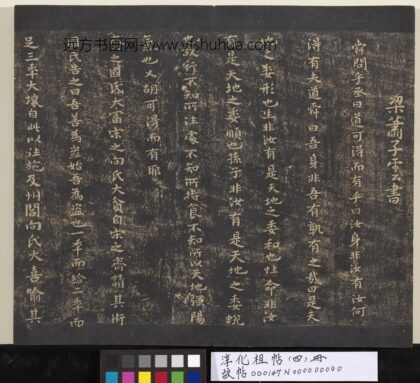 远方书画网- www.yfshuhua.com
梁蕭子雲書
舜問乎丞曰道可得而有乎曰汝身非汝有汝何
得有夫道舜曰吾身非吾有孰有之哉曰是天
地之委形也生非汝有是天地之委和也性命非汝
有是天地之委順也孫子非汝有是天地之委蛻
也行不知所往處不知所持食不知所以天地強陽
氣也又胡可得而有耶
之國氏大富宋之向氏大貧自宋之齊請其術
國氏告之曰吾善為盜始吾為盜也一年而給二年而
足三年大壤自此以往施及州閭向氏大喜喻其
淳化祖帖(四)冊
故帖000147N000000090